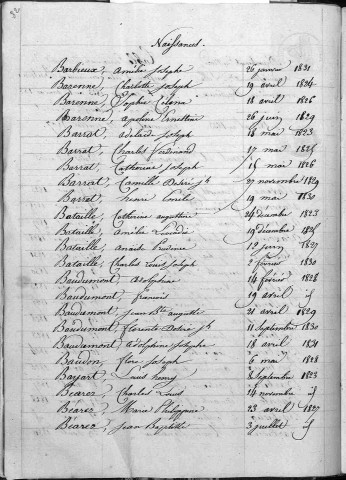 Naissances.
Barbieux, Amélie Joseph 26 janvier 1831
Baronne, Charlotte Joseph 19 avril 1824
Baronne, Sophie 18 avril 1826
Baronne, Ernestine 26 juin 1829
Barrat, Adelard Joseph 18 mai 1823
Barrat, Charles Ferdinand 17 mai 1825
Barrat, Catherine Joseph 15 mai 1826
Barrat, Camille Désiré Jh 27 novembre 1829
Barrat, henri 19 mai 1830
Bataille, Catherine augustine 24 décembre 1823
Bataille, Amélie 19 décembre 1825
Bataille, 12 juin 1827
Bataille, Charles Louis Joseph 2 février 1830
Baudumont, adolphine 14 février 1828
Baudumont, francois 19 avril id
Baudumont, Jean Bte auguste 21 avril 1829
Baudumont, Florent Désiré Jh 11 Septembre 1830
Baudumont, Adolphine Josephe 18 avril 1831
Baudon, Flore Joseph 6 mai 1828
Bayart, Louis henry 3 Septembre 1823
Béarez, Charles Louis 14 novembre id
Béarez, Marie Philippine 23 avril 1827
Béarez, Jean Baptiste 3 juillet id